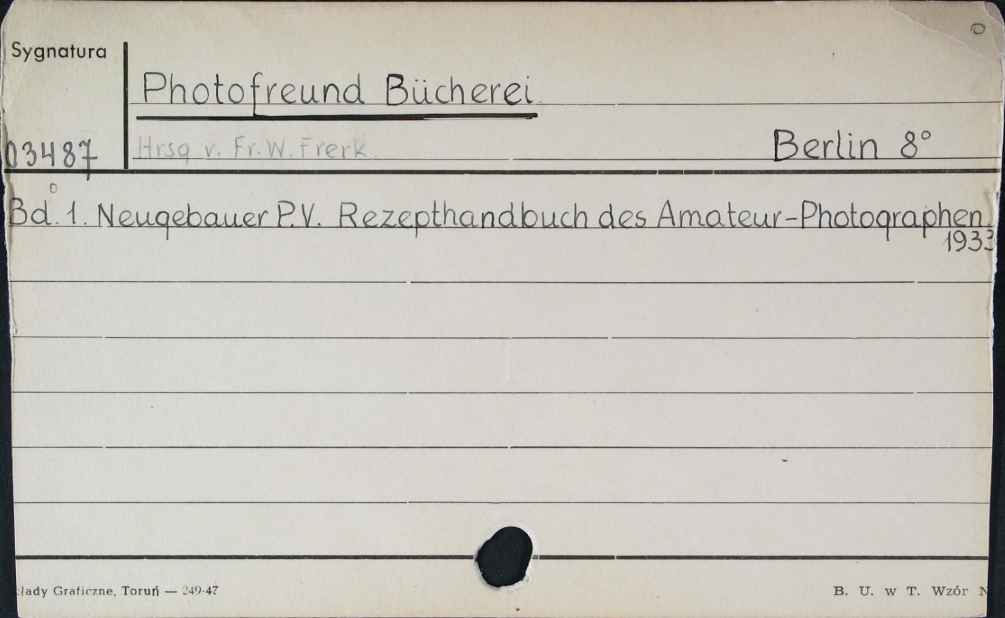 Sygnatura
Photofreund Bücherei
03487
Hrsg v. Fr. W. Frerk
Berlin 8°
Bd. 1. Neugebauer P.V. Rezepthandbuch des Amateur-Photographen.
1933
łady Graficzne, Toruń — 249-47
B. U. w T. Wzór N